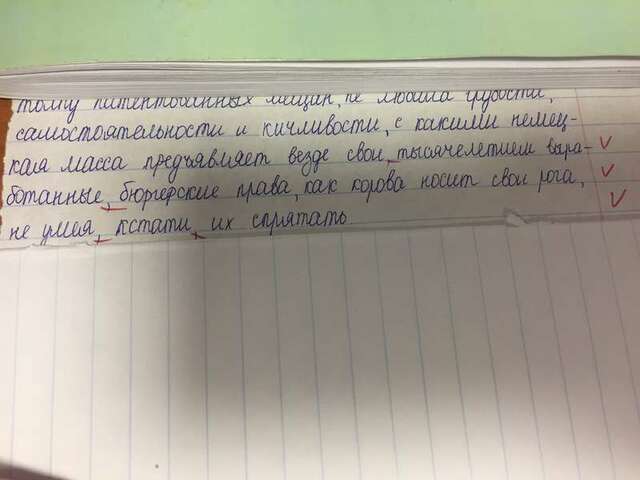 тому патентованных мещан, не любила грубости,
самостоятельности и кичливости, с какими немец-
кая масса предъявляет везде свои, тысячелетием выра-
ботанные, бюргерские права, как корова носит свои рога,
не умея, кстати, их спрятать.